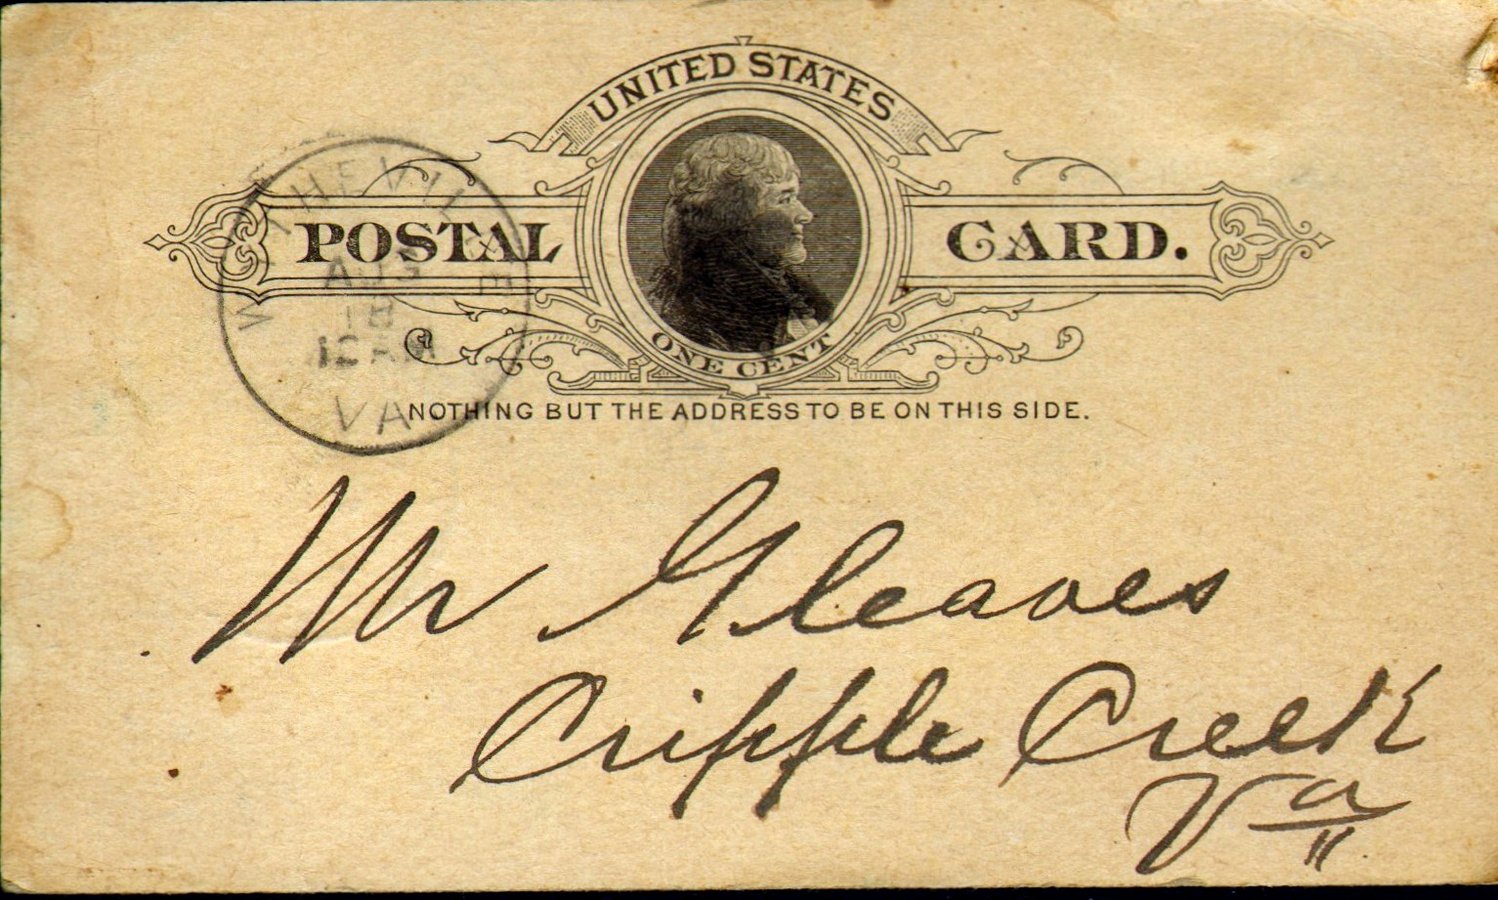 UNITED STATES
POSTAL CARD.
ONE CENT
WYTHEVILLE
AUG
18
12 AM
VA
NOTHING BUT THE ADDRESS TO BE ON THIS SIDE.
Mr Gleaves
Cripple Creek
Va